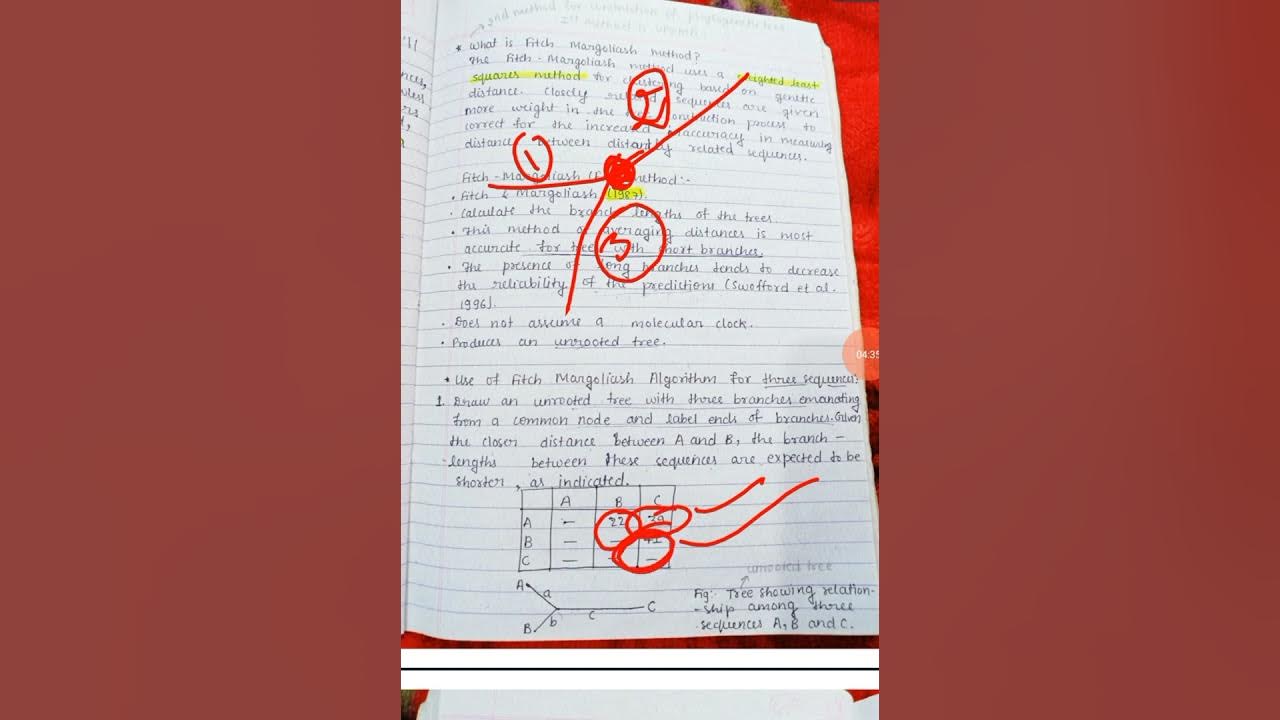 2nd method for construction of phylogenetic tree
Ist method is UPGMA
* What is Fitch Margoliash method?
The Fitch-Margoliash method uses a weighted least
squares method for clustering based on genetic
distance. Closely related sequences are given
more weight in the construction process to
correct for the increased inaccuracy in measuring
distances between distantly related sequences.
II
1
Fitch-Margoliash method:-
• Fitch & Margoliash (1987).
• Calculate the branch lengths of the trees.
• This method of averaging distances is most
accurate for trees with short branches.
3
• The presence of long branches tends to decrease
the reliability of the predictions (Swofford et al.
1996).
• Does not assume a molecular clock.
• Produces an unrooted tree.
04:35
* Use of Fitch Margoliash Algorithm for three sequences:
1. Draw an unrooted tree with three branches emanating
from a common node and label ends of branches. Given
the closer distance between A and B, the branch-
-lengths between these sequences are expected to be
shorter, as indicated.
A B C
A — 22 39
B — — 41
C — — —
unrooted tree
A a
c C
B b
Fig:- Tree showing relation-
-ship among three
sequences A, B and C.